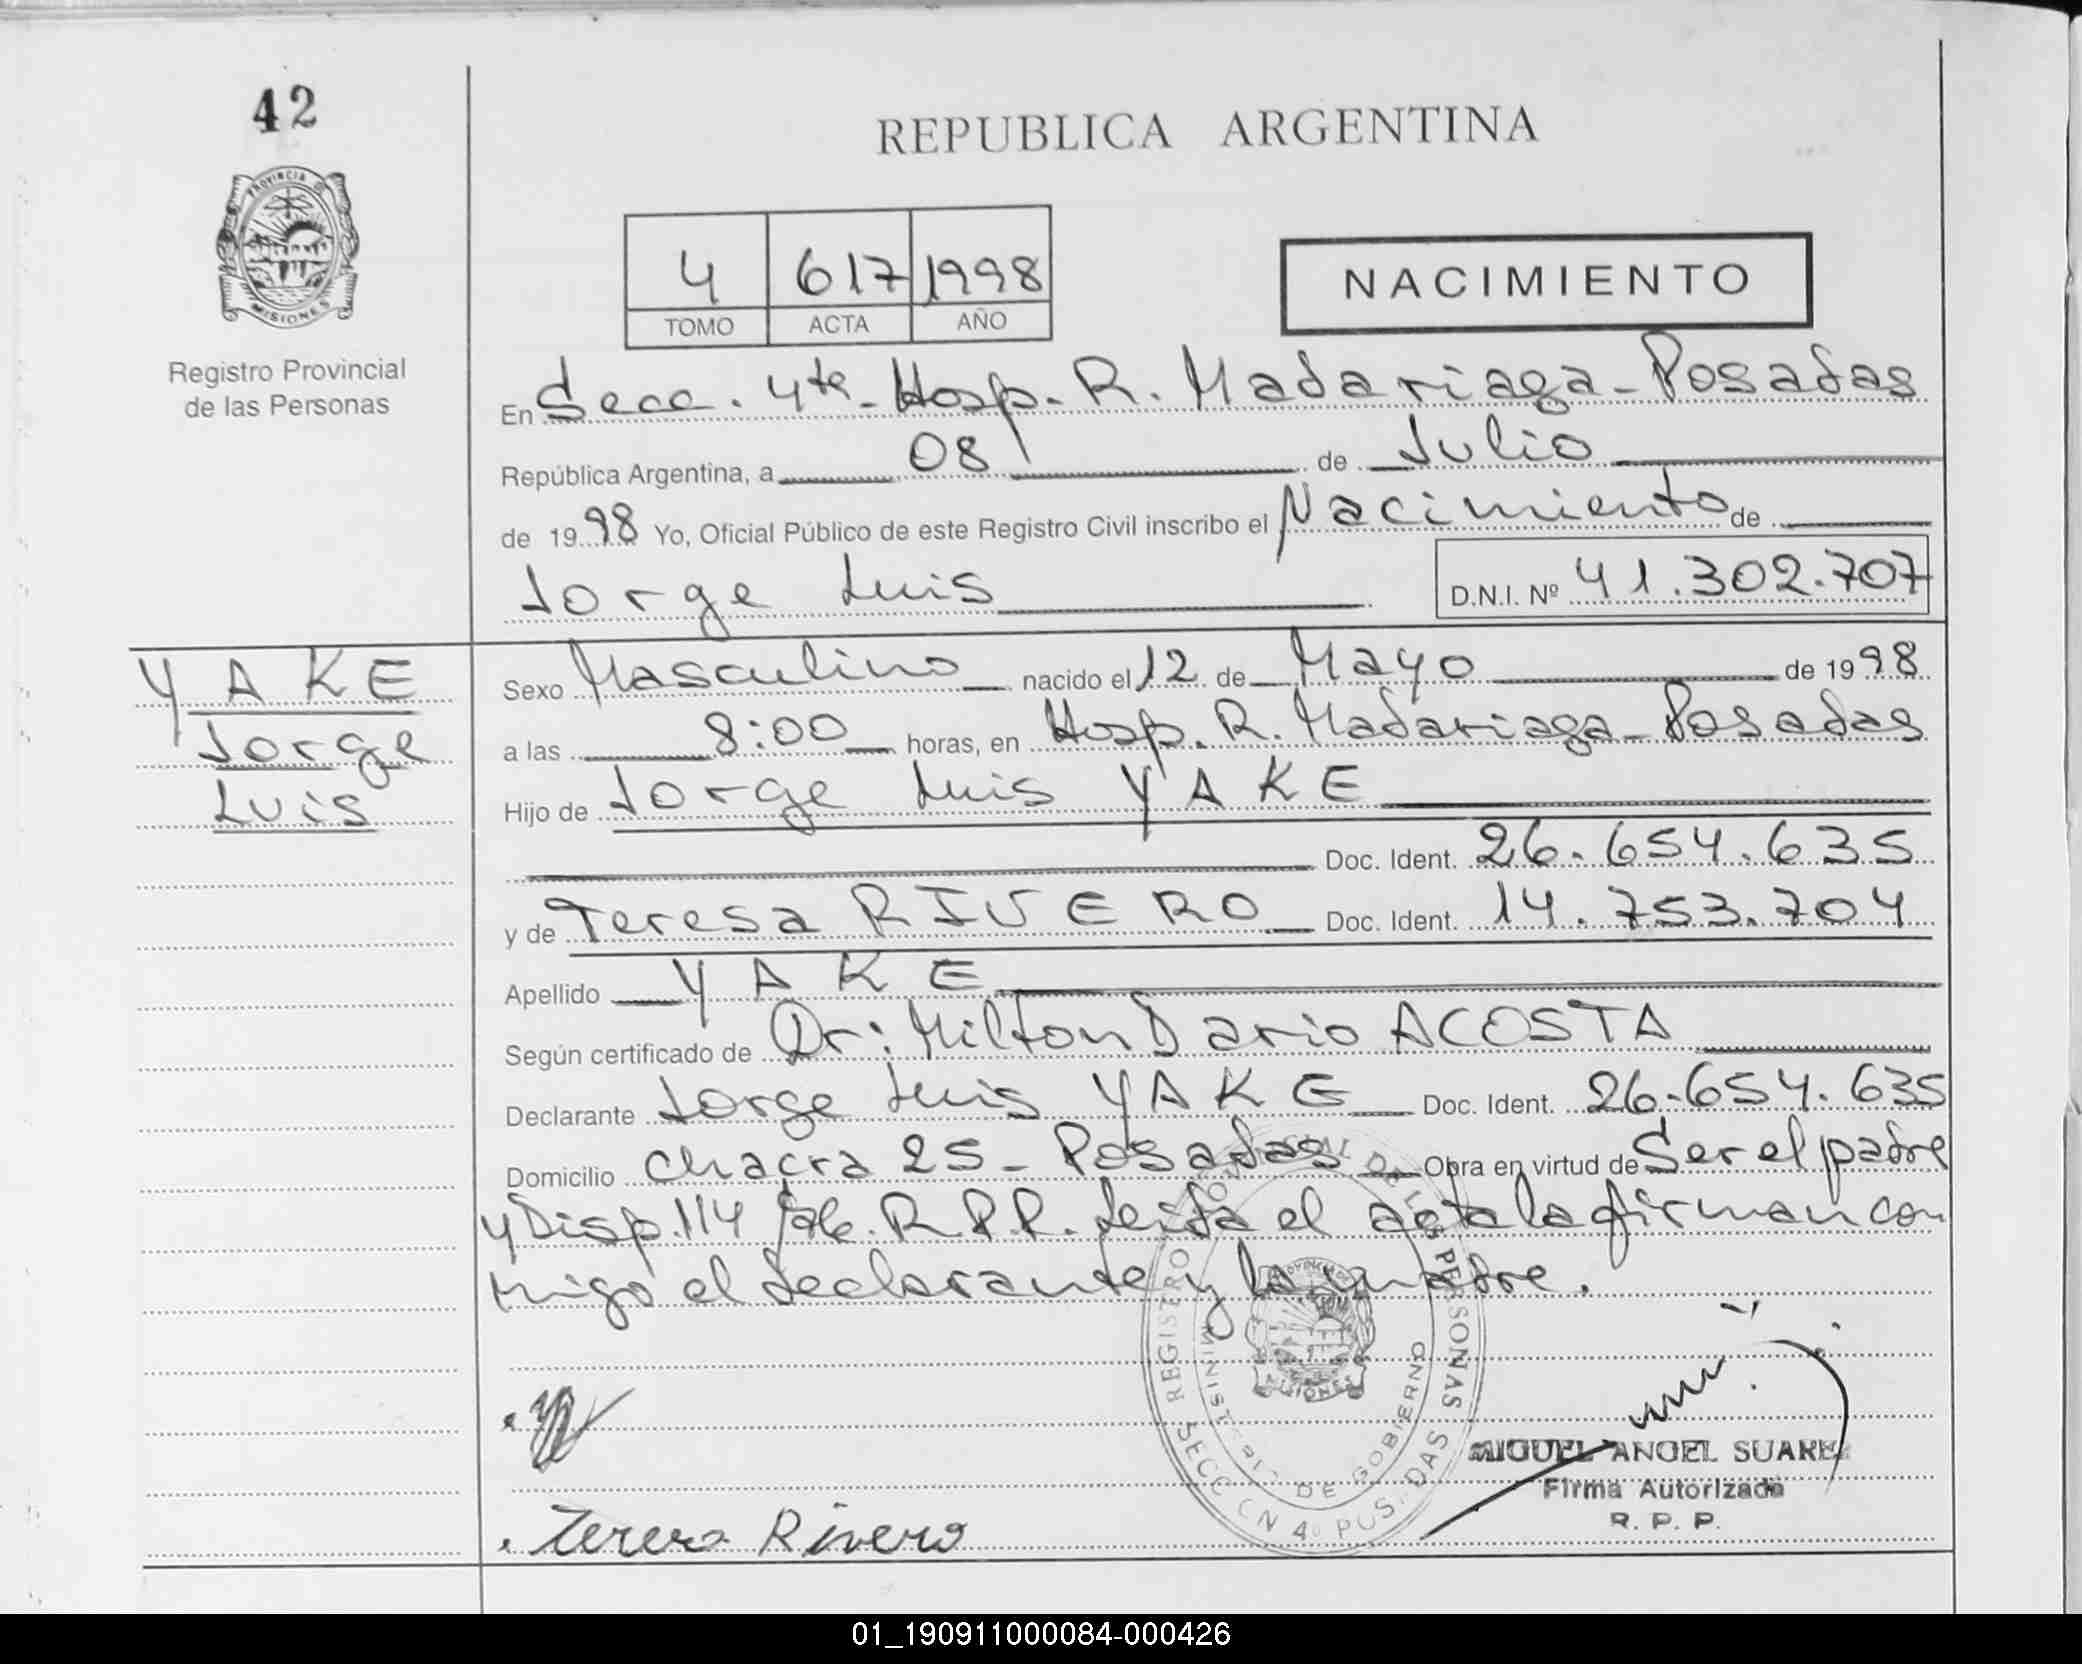 42
PROVINCIA DE
MISIONES
Registro Provincial
de las Personas
REPUBLICA ARGENTINA
4 617 1998
TOMO ACTA AÑO
NACIMIENTO
En Secc. 4ta - Hosp. R. Madariaga - Posadas
República Argentina, a 08 de Julio
de 1998 Yo, Oficial Público de este Registro Civil inscribo el Nacimiento de
Jorge Luis D.N.I. Nº 41.302.707
YAKE
Jorge
Luis
Sexo Masculino nacido el 12 de Mayo de 1998
a las 8:00 horas, en Hosp. R. Madariaga - Posadas
Hijo de Jorge Luis YAKE
Doc. Ident. 26.654.635
y de Teresa RIVERO Doc. Ident. 14.753.704
Apellido YAKE
Según certificado de Dr: Milton Dario ACOSTA
Declarante Jorge Luis YAKE Doc. Ident. 26.654.635
Domicilio Chacra 25 - Posadas Obra en virtud de Ser el padre
y Disp. 114/96. R.P.P. Leida el acta la firman con
migo el declarante y la madre.
REGISTRO PROVINCIAL DE LAS PERSONAS
MINISTERIO DE GOBIERNO
SECCION 4º POSADAS
MIGUEL ANGEL SUAREZ
Firma Autorizada
R. P. P.
Teresa Rivero
01_190911000084-000426